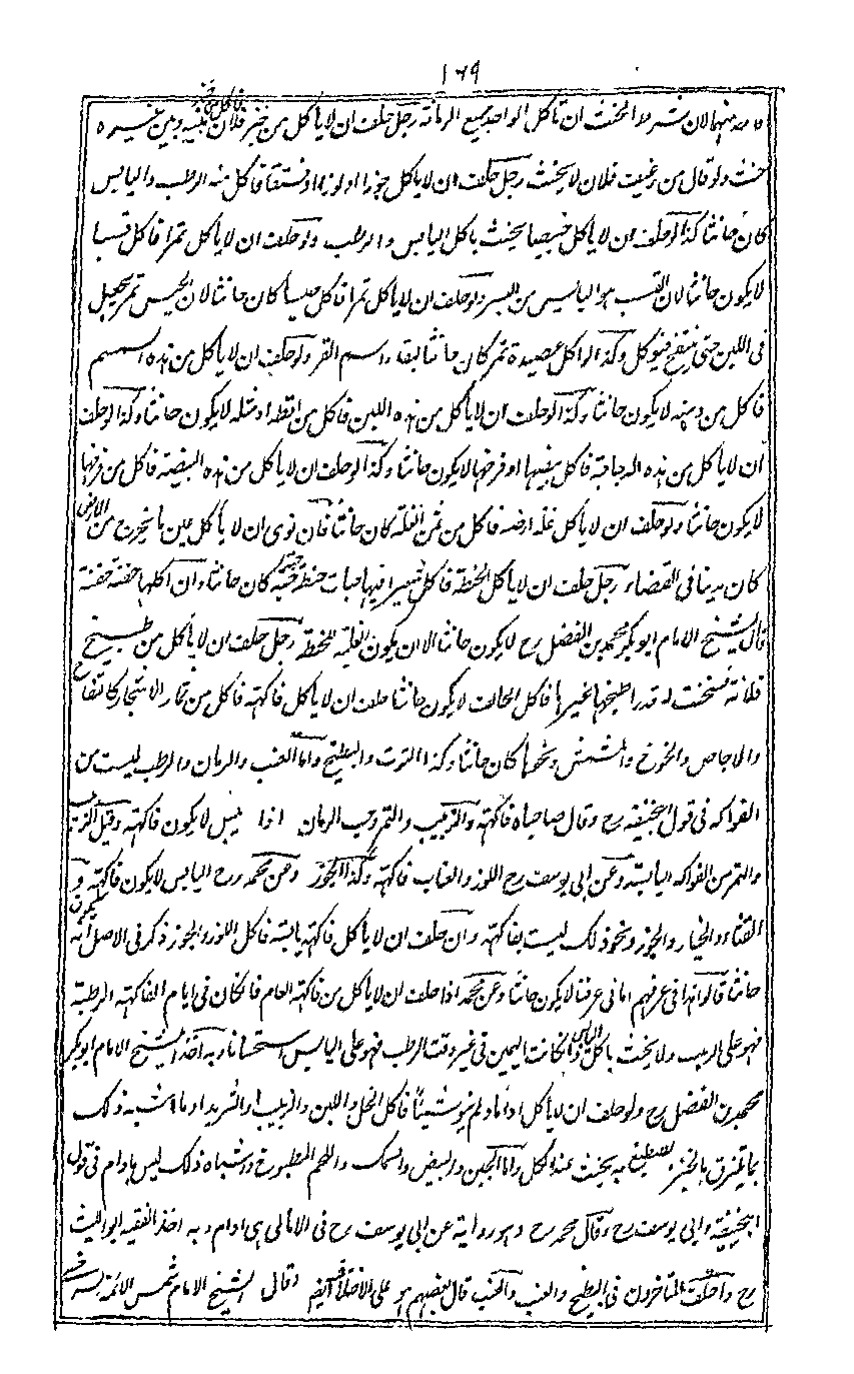 ١٦٩
منهما لان شرط الحنث ان تأكل الواحد جميع الرمانة رجل حلف ان لا يأكل من خبز فلان فاكل من خبز بينه وبين غيره
حنث ولو قال من رغيف فلان لا يحنث رجل حلف ان لا يأكل جوزا او لوزا او فستقا فاكل منه الرطب واليابس
كان حانثا كذا لو حلف ان لا يأكل خبيصا يحنث باكل اليابس والرطب ولو حلف ان لا يأكل تمرا فاكل قسبا
لا يكون حانثا لان القسب هو اليابس من البسر ولو حلف ان لا يأكل تمرا فاكل حيسا كان حانثا لان الحيس تمر يجعل
فى اللبن حتى ينتفخ فيؤكل وكذا لو اكل عصيدة تمر كان حانثا لبقاء اسم التمر ولو حلف ان لا يأكل من هذه السمسم
فاكل من دهنه لا يكون حانثا وكذا لو حلف ان لا يأكل من هذه اللبن فاكل من اقطه او مثله لا يكون حانثا وكذا لو حلف
ان لا يأكل من هذه الدجاجة فاكل بيضها او فرخها لا يكون حانثا وكذا لو حلف ان لا يأكل من هذه البيضة فاكل من فرخها
لا يكون حانثا ولو حلف ان لا يأكل غلة ارضه فاكل من ثمن الغلة كان حانثا فان نوى ان لا يأكل عين ما يخرج من الارض
كان مدينا فى القضاء رجل حلف ان لا يأكل الحنطة فاكل شعيرا فيها حبات حنطة حبة حبة كان حانثا وان اكلها حفنة حفنة
قال الشيخ الامام ابو بكر محمد بن الفضل رح لا يكون حانثا الا ان يكون الغلبة للحنطة رجل حلف ان لا يأكل من طبيخ
فلانة فسخنت له قدرا طبخها غيرها فاكل الحالف لا يكون حانثا حلف ان لا يأكل فاكهة فاكل من ثمار الاشجار كالتفاح
والاجاص والخوخ والمشمش ونحوها كان حانثا وكذا التوت والبطيخ واما العنب والرمان والرطب ليست من
الفواكه فى قول ابيحنيفة رح وقال صاحباه فاكهة والزبيب والتمر وحب الرمان اذا يبس لا يكون فاكهة وقيل الزبيب
والتمر من الفواكه اليابسة وعن ابى يوسف رح اللوز والعناب فاكهة وكذا الجوز وعن محمد رح اليابس لا يكون فاكهة و
القثاء والخيار والجزر ونحو ذلك ليست بفاكهة وان حلف ان لا يأكل فاكهة يابسة فاكل اللوز والجوز ذكر فى الاصل انه يكون
حانثا قالوا هذا فى عرفهم اما فى عرفنا لا يكون حانثا وعن محمد اذا حلف ان لا يأكل من فاكهة العام فان كان فى ايام الفاكهة الرطبة
فهو على الرطب ولا يحنث باكل اليابس وان كانت اليمين فى غير وقت الرطب فهو على اليابس استحسانا وبه اخذ الشيخ الامام ابو بكر
محمد بن الفضل رح ولو حلف ان لا يأكل اداما ولم ينو شيئا فاكل الخل واللبن والزبيب او الثريد او ما اشبه ذلك
مما يلتزق بالخبز يصطبغ به يحنث عند الكل واما الجبن والبيض والسمك واللحم المطبوخ واشباه ذلك ليس بادام فى قول
ابيحنيفة وابى يوسف رح وقال محمد رح وهو رواية عن ابى يوسف رح فى الامالى هى ادام وبه اخذ الفقيه ابو الليث
رح واختلف المتاخرون فى البطيخ والعنب قال بعضهم هو على الاختلاف ايضا وقال الشيخ الامام شمس الائمة السرخسى